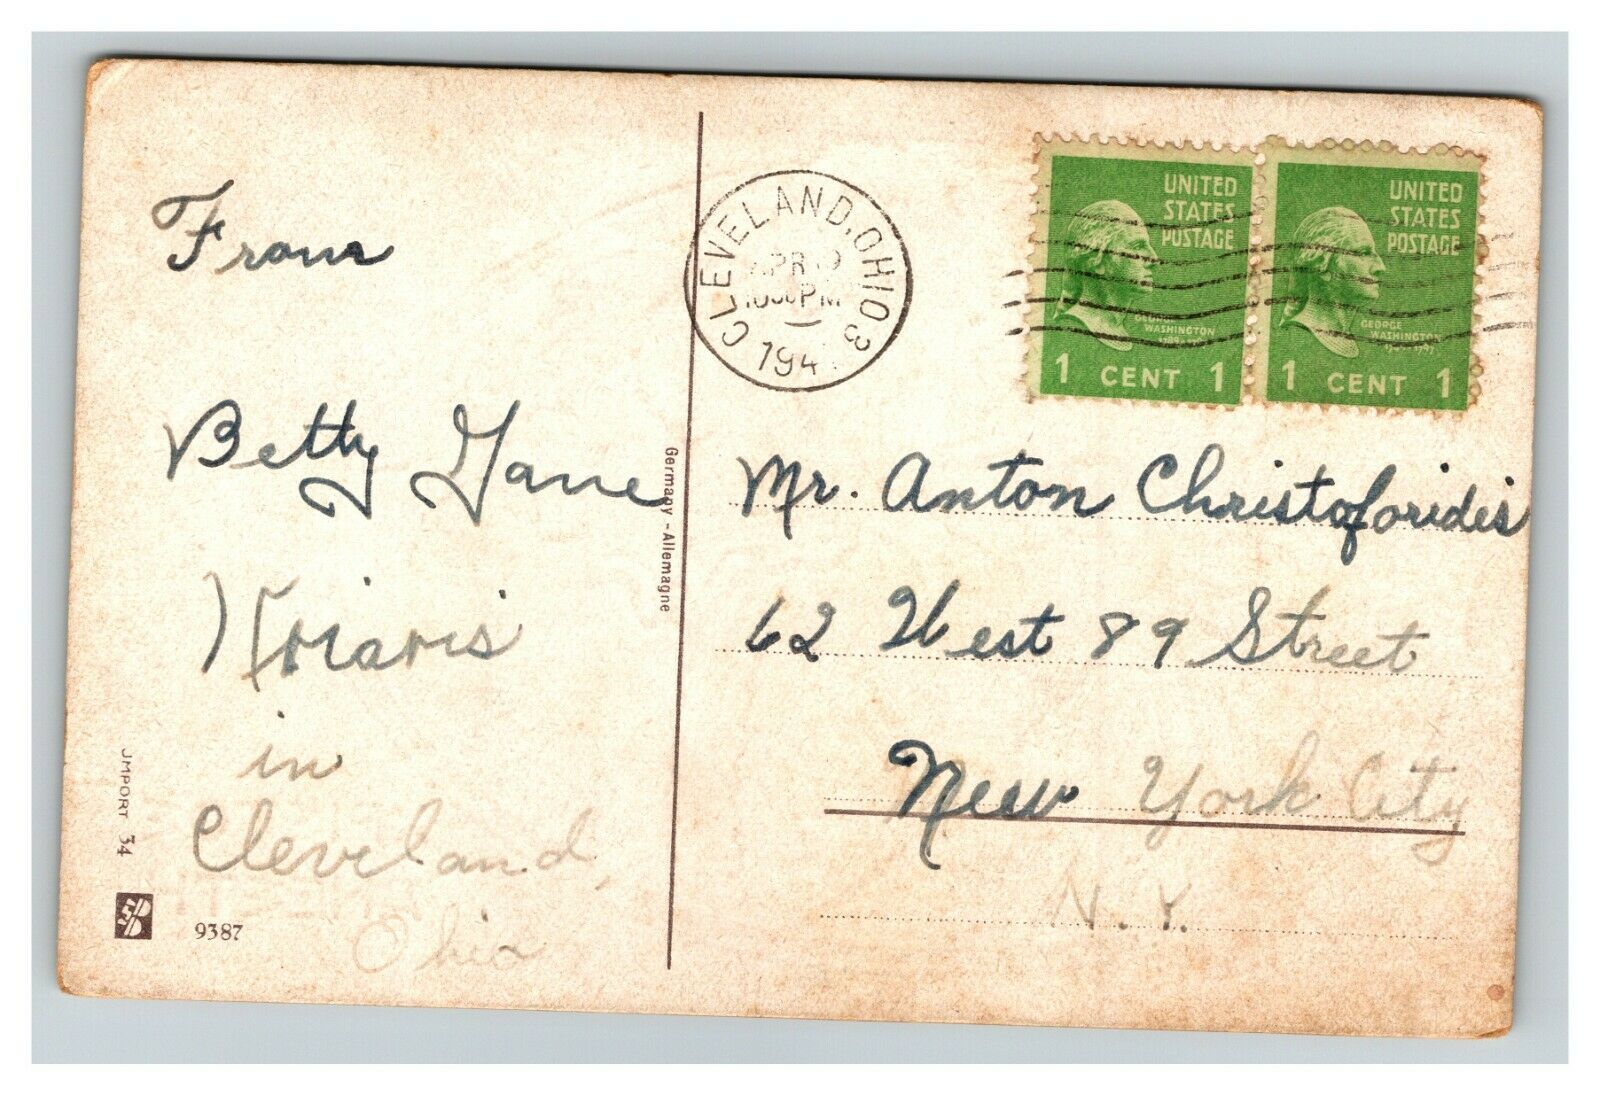 From
Betty Jane
in
Cleveland,
Ohio
JMPORT 34
9387
Germany - Allemagne
CLEVELAND, OHIO 3
APR 9
PM
194
UNITED
STATES
POSTAGE
GEORGE
WASHINGTON
1 CENT 1
UNITED
STATES
POSTAGE
GEORGE
WASHINGTON
1 CENT 1
Mr. Anton Christoforidis
62 West 89 Street
New York City
N.Y.